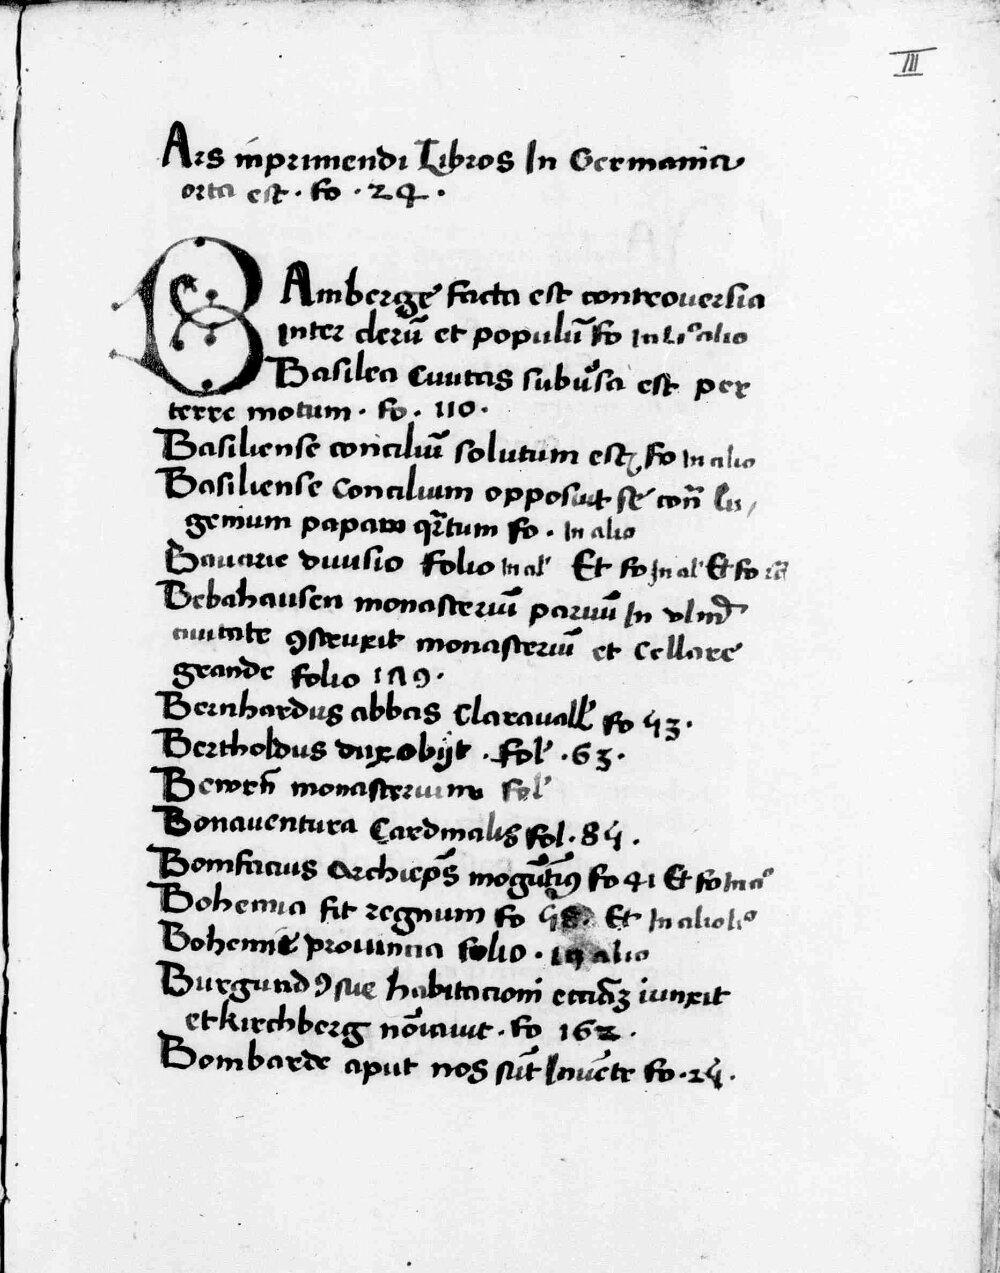 III
Ars inprimendi Libros In Germania
orta est · fo · 24 ·
BAmberge facta est controuersia
inter clerū et populū fo In li° alio
Basilea Ciuitas subu͛sa est per
terre motum · fo · 110 ·
Basiliense conciliū solutum est fo In alio
Basiliense Concilium opposuit se con̄
genium papam qr̄tum fo · In alio
Bauarie diuisio folio In al' Et fo In al' Et fo
Bebahausen monasteriū paruū In vlm̄
ciuitate ꝯstruxit monasteriū et Cellare
grande folio 189 ·
Bernhardus abbas Clarauall' fo 53 ·
Bertholdus dux obijt · fol' · 63 ·
monasterium fol'
Bonauentura Cardinalis fol · 85 ·
Bonifacius Archiep̄s mogūtin⁹ fo 41 Et fo In a°
Bohemia fit regnum fo 58 · Et In alio li°
Bohemie prouincia folio · In alio
Burgund ꝯ sue habitacioni iunxit
et kirchberg nōiauit · fo 162 ·
Bombarde aput nos sūt Inuēte fo · 25 ·